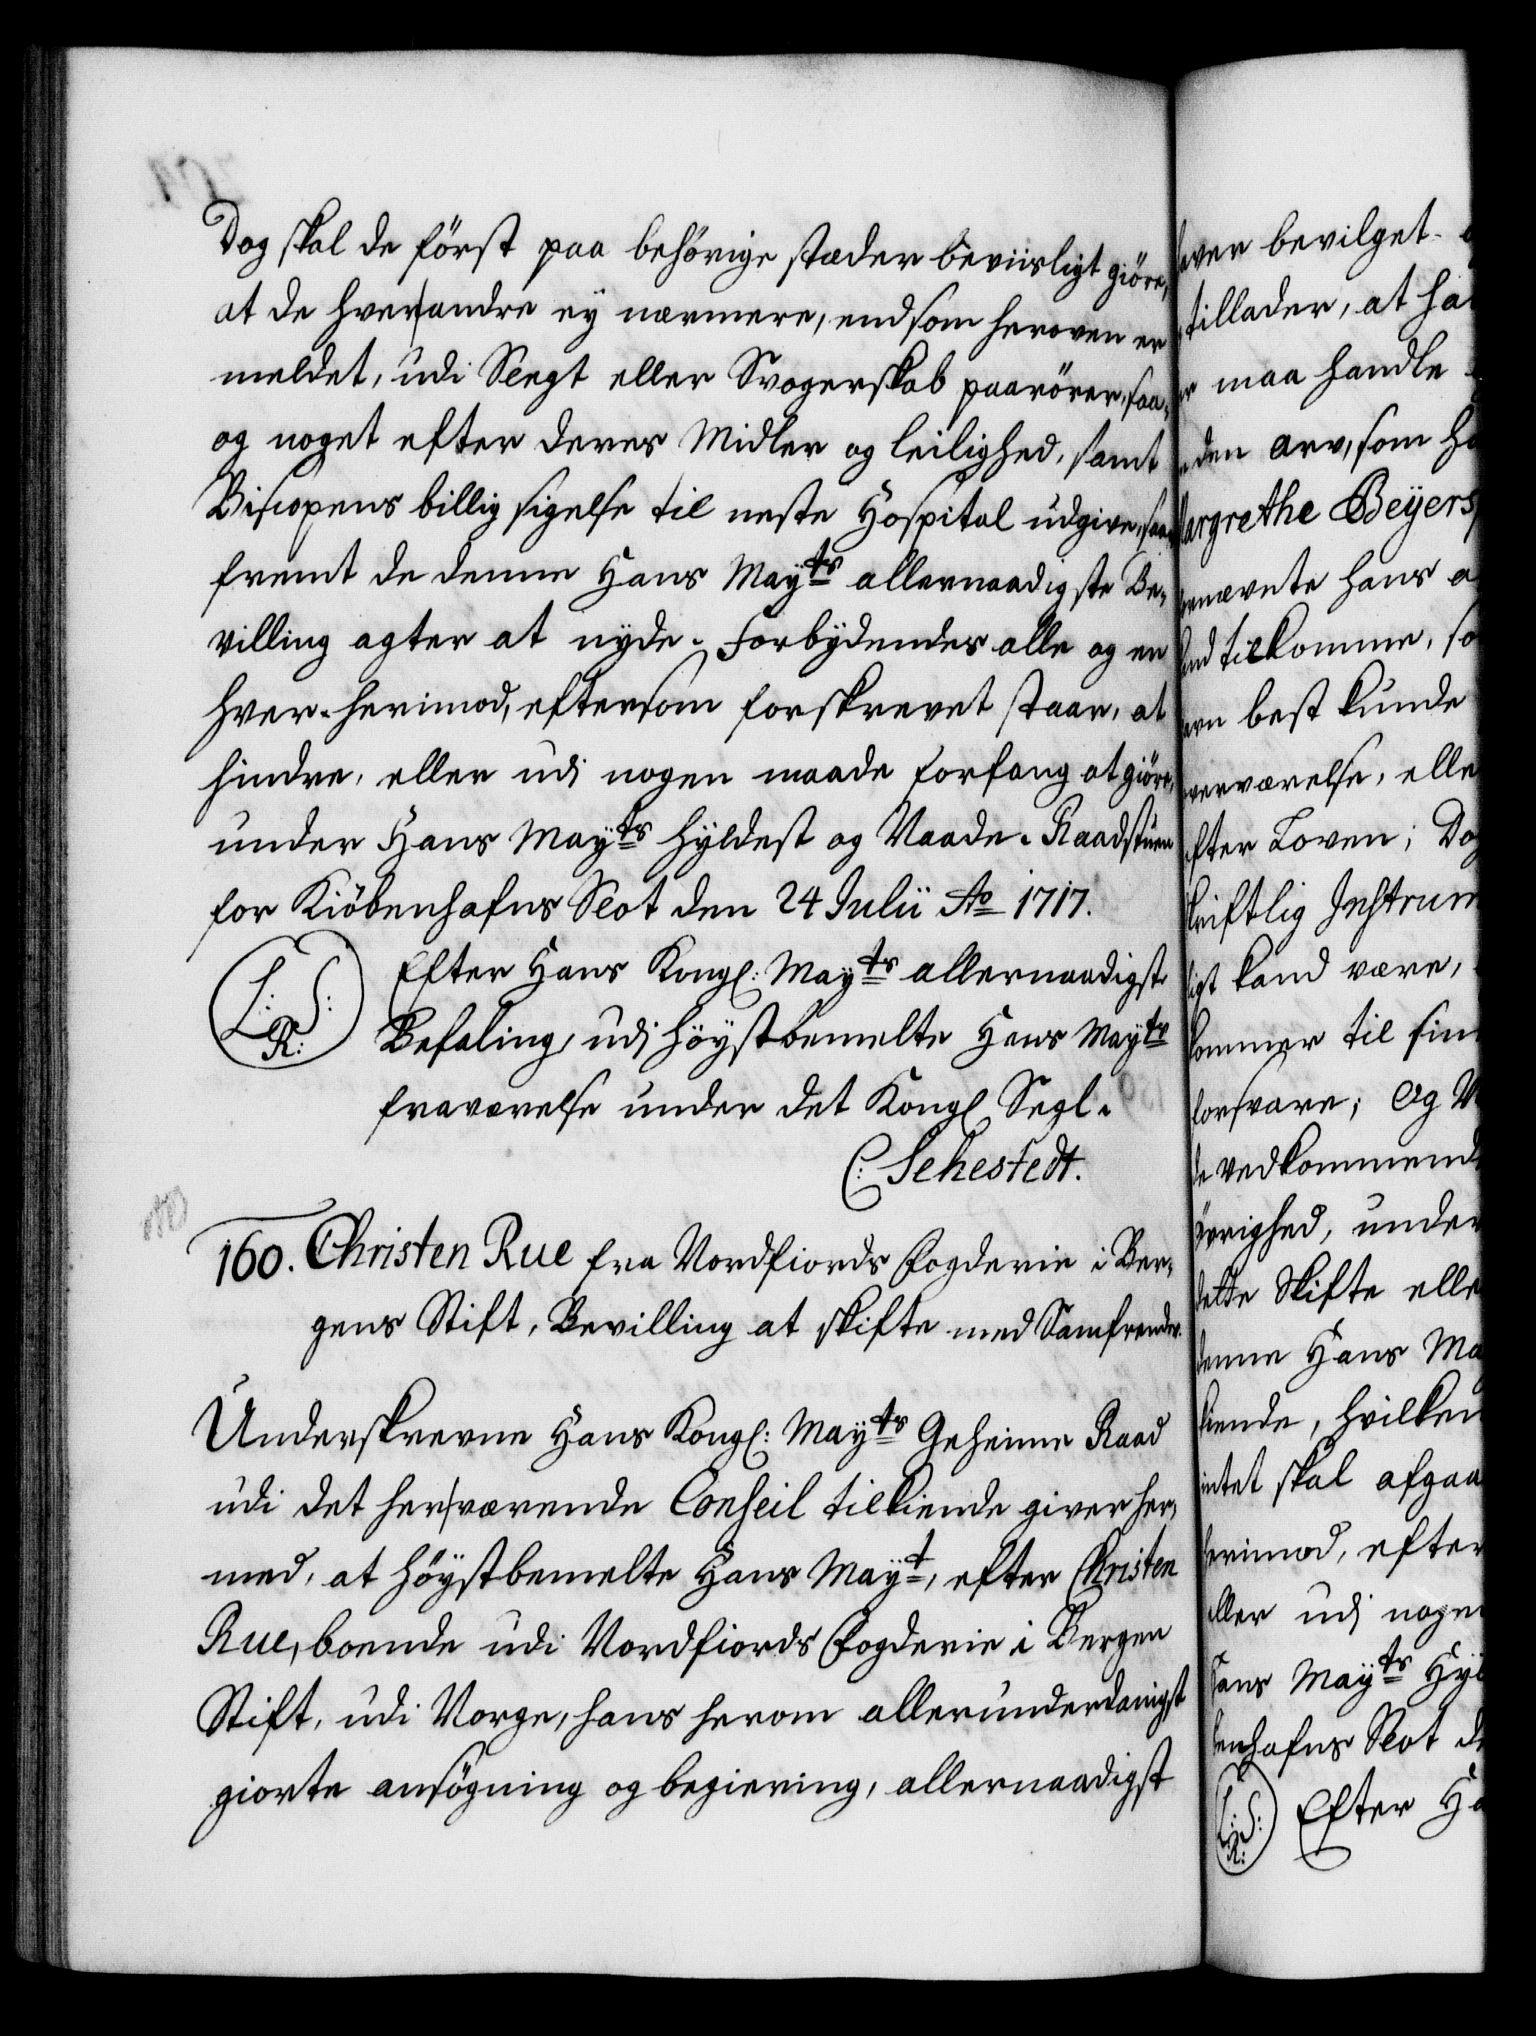 Dog skal de först paa behörige stæder beviisligt giöre,
at de hverandre ey nærmere, end som heroven er
meldet, udi Slegt eller Svogerskab paarörer, saa-
og noget efter deres Midler og leilighed, samt
Biscopens billig sigelse til neste Hospital udgive, saa-
fremt de denne Hans Mayts allernaadigste Be-
villing agter at nyde. Forbydendes alle og en
hver herimod, eftersom forskrevet staar, at
hindre, eller udi nogen maade forfang at giöre,
under Hans Mayts hyldest og Naade. Raadstuen
for Kiöbenhafns Slot den 24 Julii Ao 1717.
L: S:
R:
Efter Hans Kongl: Mayts allernaadigste
Befaling, udi höystbemelte Hans Mayts
fraværelse under det Kongl Segl.
C: Sehestedt.
160. Christen Rue fra Nordfiords Fogderie i Ber-
gens Stift, Bevilling at skifte med Samfrender.
Underskrevne Hans Kongl: Mayts Geheime Raad
udi det herværende Conseil tilkiende giver her-
med, at höystbemelte Hans Mayt, efter Christen
Rue, boende udi Nordfiords Fogderie i Bergen
Stift, udi Norge, hans herom allerunderdanigst
giorte ansögning og begiering, allernaadigst
bevilget
tillader, at
maa handle
den arv, som
Beyers
hans
tilkomme,
best kunde
Loven; Dog
kand være,
til
forsvare; Og
vedkommende
under
dette Skifte
denne Hans
skal
herimod, efter
eller udi
Hans Mayts
Slot
L: S:
R:
Efter